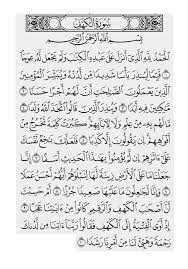 سُورَةُ الكَهْفِ
بِسْمِ ٱللَّهِ ٱلرَّحْمَٰنِ ٱلرَّحِيمِ
ٱلْحَمْدُ لِلَّهِ ٱلَّذِىٓ أَنزَلَ عَلَىٰ عَبْدِهِ ٱلْكِتَٰبَ وَلَمْ يَجْعَل لَّهُۥ عِوَجَا ۜ ١
قَيِّمًا لِّيُنذِرَ بَأْسًا شَدِيدًا مِّن لَّدُنْهُ وَيُبَشِّرَ ٱلْمُؤْمِنِينَ
ٱلَّذِينَ يَعْمَلُونَ ٱلصَّٰلِحَٰتِ أَنَّ لَهُمْ أَجْرًا حَسَنًا ٢
مَّٰكِثِينَ فِيهِ أَبَدًا ٣ وَيُنذِرَ ٱلَّذِينَ قَالُوا۟ ٱتَّخَذَ ٱللَّهُ وَلَدًا ٤
مَّا لَهُم بِهِۦ مِنْ عِلْمٍ وَلَا لِءَابَآئِهِمْ ۚ كَبُرَتْ كَلِمَةً تَخْرُجُ مِنْ
أَفْوَٰهِهِمْ ۚ إِن يَقُولُونَ إِلَّا كَذِبًا ٥ فَلَعَلَّكَ بَٰخِعٌ نَّفْسَكَ
عَلَىٰٓ ءَاثَٰرِهِمْ إِن لَّمْ يُؤْمِنُوا۟ بِهَٰذَا ٱلْحَدِيثِ أَسَفًا ٦ إِنَّا
جَعَلْنَا مَا عَلَى ٱلْأَرْضِ زِينَةً لَّهَا لِنَبْلُوَهُمْ أَيُّهُمْ أَحْسَنُ عَمَلًا ٧
وَإِنَّا لَجَٰعِلُونَ مَا عَلَيْهَا صَعِيدًا جُرُزًا ٨ أَمْ حَسِبْتَ
أَنَّ أَصْحَٰبَ ٱلْكَهْفِ وَٱلرَّقِيمِ كَانُوا۟ مِنْ ءَايَٰتِنَا عَجَبًا ٩
إِذْ أَوَى ٱلْفِتْيَةُ إِلَى ٱلْكَهْفِ فَقَالُوا۟ رَبَّنَآ ءَاتِنَا مِن لَّدُنكَ
رَحْمَةً وَهَيِّئْ لَنَا مِنْ أَمْرِنَا رَشَدًا ١٠